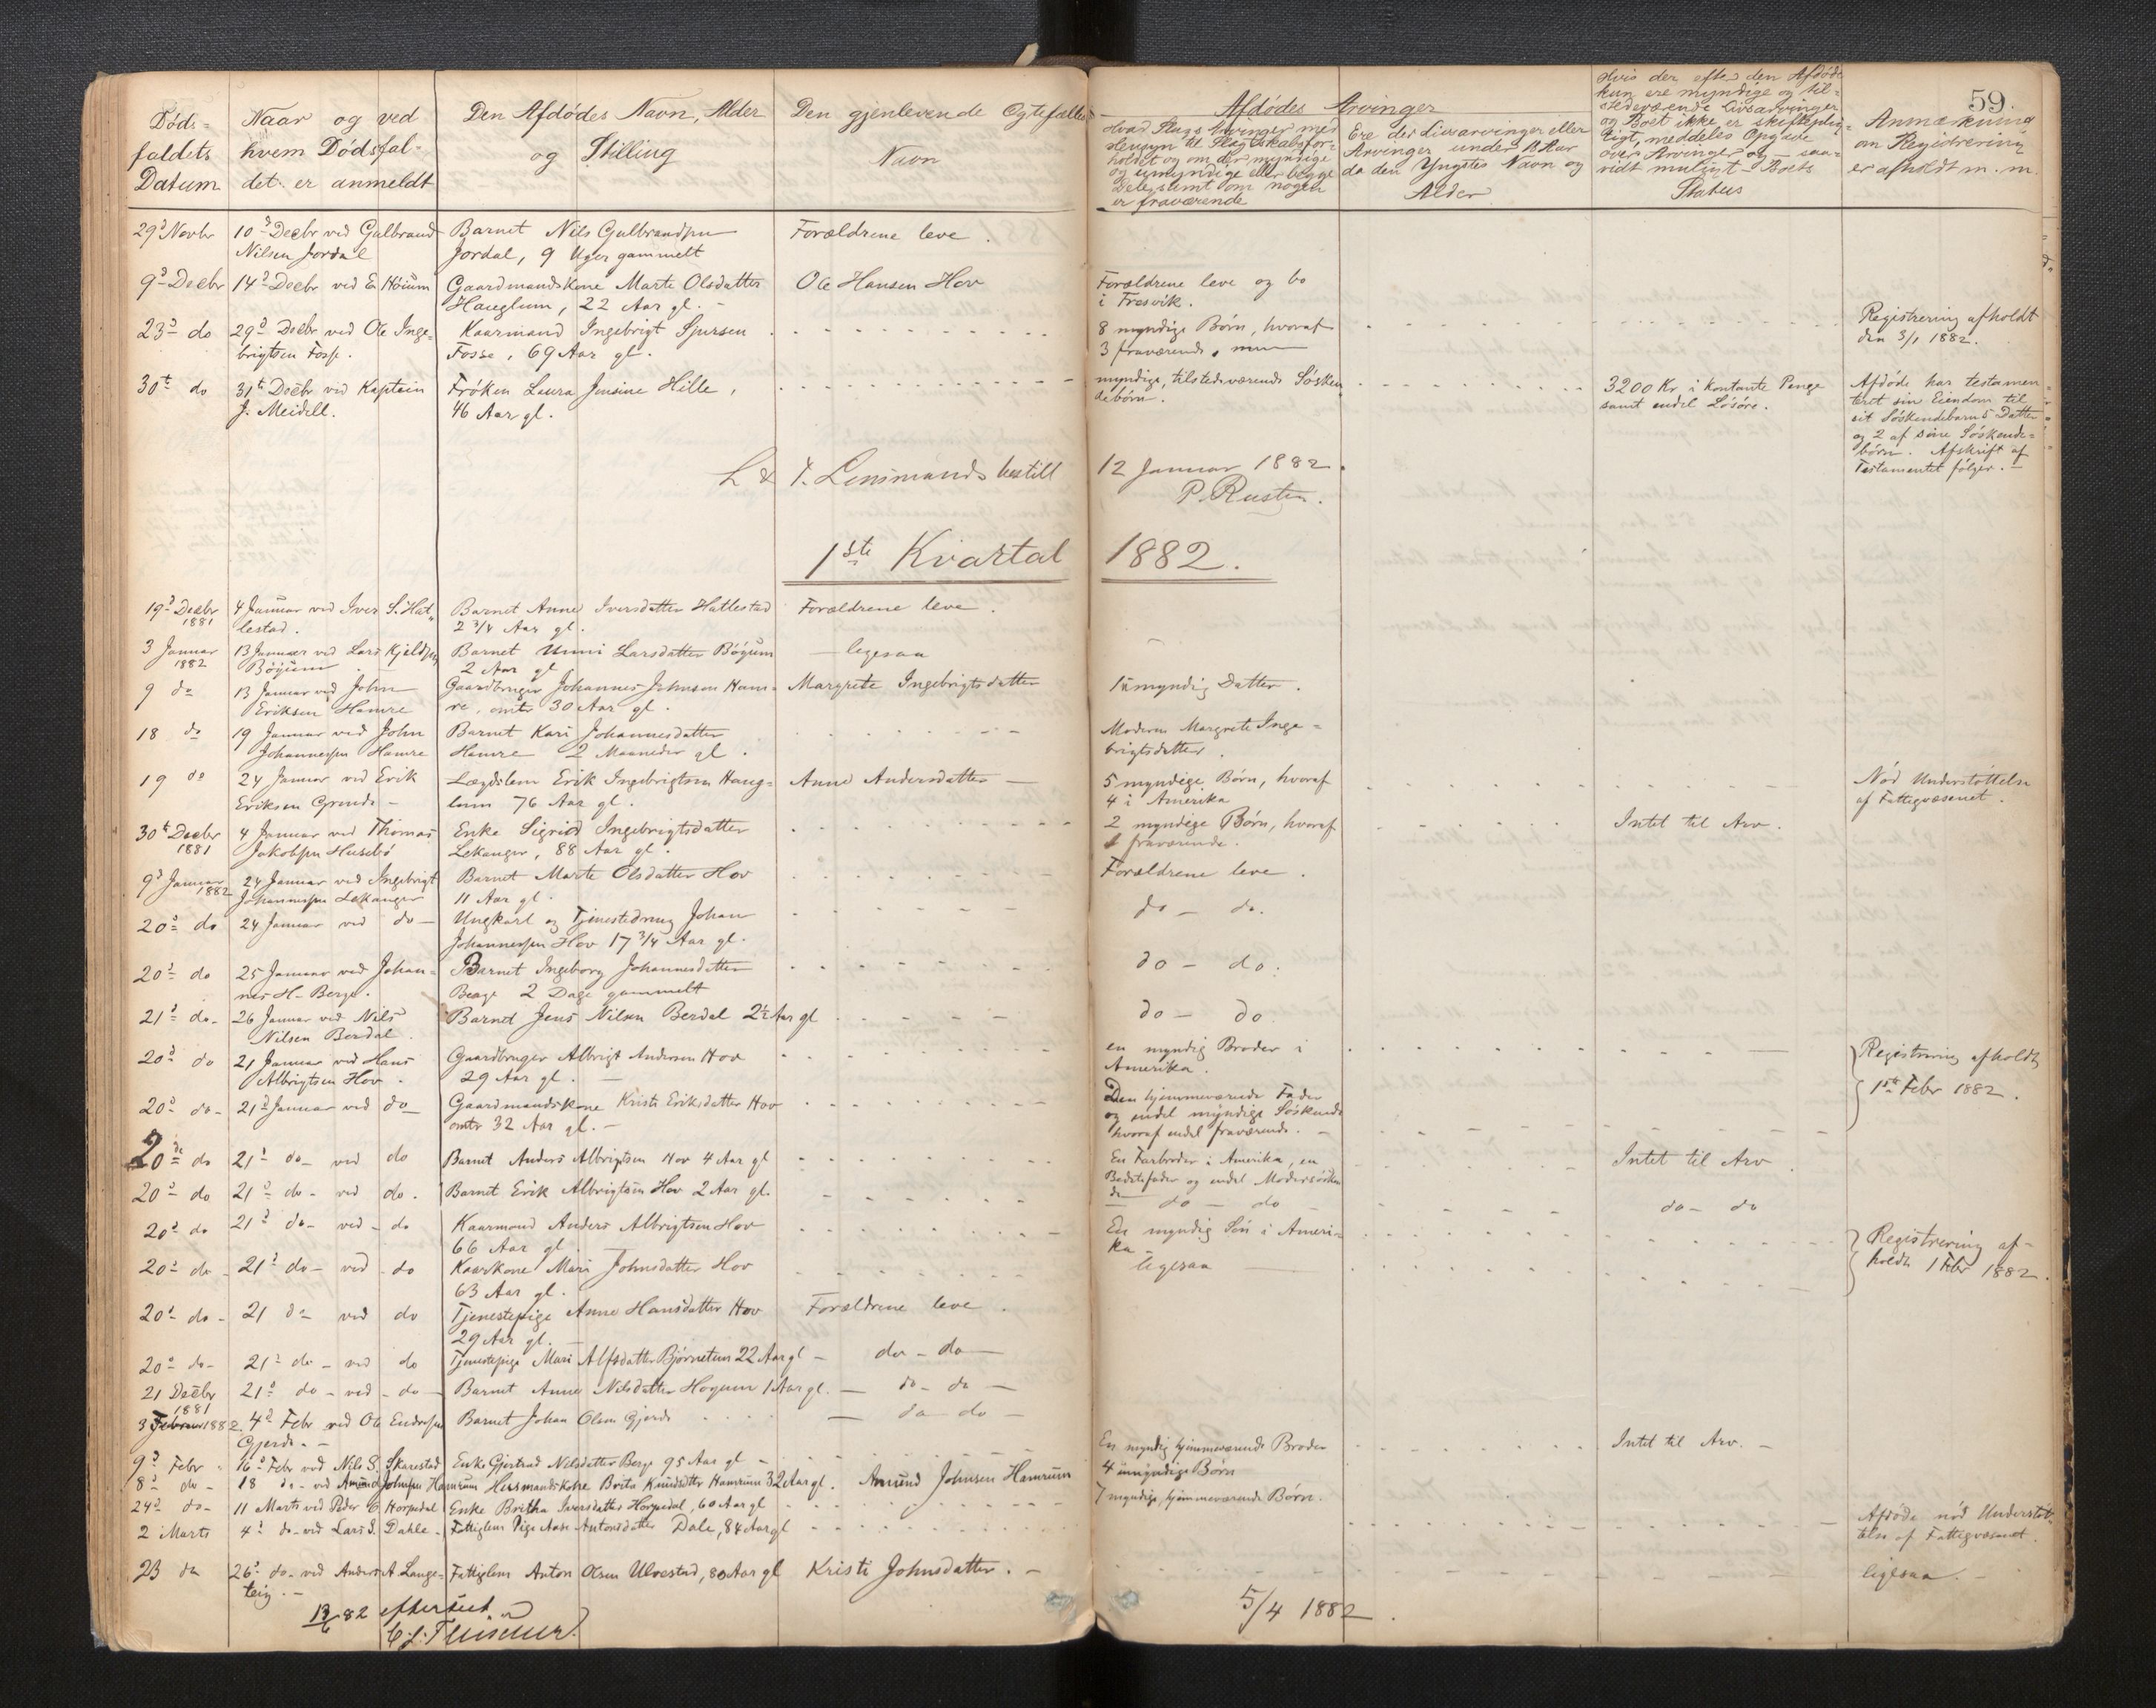 59.
Døds-
faldets
Datum
Naar og ved
hvem Dødsfal-
det er anmeldt
Den Afdødes Navn, Alder
og Stilling
Den gjenlevende Egtefælles
Navn
Afdødes Arvinger
Hvad Slags Arvinger med
Hensyn til Slægtskabsfor-
holdet og om der myndige
og umyndige eller begge
Dele, samt om nogen
er fraværende
Ere der Livsarvinger eller
Arvinger under 18 Aar
da den Yngstes Navn og
Alder
Hvis der efter den Afdøde
kun ere myndige og til-
stedeværende Livsarvinger
og Boet ikke er skiftepleg-
tigt, meddeles Opgave
over Arvinger og - saa-
vidt muligt - Boets
Status
Anmærkning
om Registrering
er afholdt m. m.
29d Novbr
10d Decbr ved Gulbrand
Nilsen Jordal
Barnet Nils Gulbrandsen
Jordal, 9 Uger gammelt
Forældrene leve.
9d Decbr
14d Decbr ved E Høium
Gaardmandskone Marte Olsdatter
Hauglum, 22 Aar gl. -
Ole Hansen Hov
Forældrene leve og bo
i Fresvik.
23d do
29d Decbr ved Ole Inge-
brigtsen Fosse.
Kaarmand Ingebrigt Sjursen
Fosse, 69 Aar gl.
8 myndige Børn, hvoraf
3 fraværende,
Registrering afholdt
den 3/1 1882.
30te do
31te Decbr ved Kaptein
J. Meidell.
Frøken Laura Jensine Hille,
46 Aar gl.
myndige, tilstedeværende Søsken-
debørn.
3200 Kr i kontante Penge
samt endel Løsøre.
Afdøde har testamen-
teret sin Eiendom til
sit Søskendebarns Datter
og 2 af sine Søskende-
børn. Afskrift af
Testamentet følger. -
L & T. Lensmandsbestill 12 Januar 1882.
P. Rusten.
1ste Kvartal 1882.
19d Decbr
1881
4 Januar ved Iver S. Hat-
lestad.
Barnet Anne Iversdatter Hatlestad
2 3/4 Aar gl.
Forældrene leve.
3 Januar
1882
13 Januar ved Lars Kjeldsen
Bøyum
Barnet Unni Larsdatter Bøyum
2 Aar gl
- ligesaa
9 do
13 Januar ved John
Eriksen Hamre
Gaardbruger Johannes Johnsen Ham-
re, omtr 30 Aar gl.
Margrete Ingebrigtsdatter
1 umyndig Datter.
18 do
19 Januar ved John
Johannessen Hamre
Barnet Kari Johannesdatter
Hamre 2 Maaneder gl.
Moderen Margrete Inge-
brigtsdatter.
19 do
24 Januar ved Erik
Eriksen Grinde -
Lægdslem Erik Ingebrigtsen Haug-
lum 76 Aar gl.
Anne Andersdatter -
5 myndige Børn, hvoraf
4 i Amerika
Nød Understøttelse
af Fattigvæsenet.
30te Decbr
1881
4 Januar ved Thomas
Jakobsen Husebø
Enke Sigrid Ingebrigtsdatter
Lekanger, 88 Aar gl.
2 myndige Børn, hvoraf
1 fraværende.
Intet til Arv.
9d Januar
1882
24 Januar ved Ingebrigt
Johannessen Lekanger
Barnet Marte Olsdatter Hov
11 Aar gl.
Forældrene leve.
20d do
24 Januar ved do -
Ungkarl og Tjenestedreng Johan
Johannessen Hov 17 3/4 Aar gl.
do - do.
20d do
25 Januar ved Johan-
nes H. Berge.
Barnet Ingeborg Johannesdatter
Berge 2 Dage gammelt
do - do.
21d do -
26 Januar ved Nils
Nilsen Berdal.
Barnet Jens Nilsen Berdal 2½ Aar gl
do - do
20d do
21 Januar ved Hans
Albrigtsen Hov.
Gaardbruger Albrigt Andersen Hov
29 Aar gl. -
en myndig Broder i
Amerika.
Registrering afholdt
1ste Febr 1882.
20d do -
21d Januar ved do -
Gaardmandskone Kristi Eriksdatter Hov
omtr 32 Aar gl. -
Den hjemmeværende Fader
og endel myndige Søskende
hvoraf endel fraværende. -
20de do
21d do - ved do
Barnet Anders Albrigtsen Hov 4 Aar gl
En Farbroder i Amerika, en
Bedstefader og endel Modersøsken-
de
Intet til Arv.
20d do
21d do - ved do.
Barnet Erik Albrigtsen Hov 2 Aar gl.
- do - do -
do - do
20d do
21d do - ved - do
Kaarmand Anders Albrigtsen Hov
66 Aar gl. -
En myndig Søn i Ameri-
ka -
Registrering af-
holdt 1 Febr 1882.
20d do -
21d do - ved - do
Kaarkone Mari Johnsdatter Hov
63 Aar gl.
ligesaa -
20d do -
21 do ved do
Tjenestepige Anne Hansdatter Hov
29 Aar gl. -
Forældrene leve.
20d do -
21d do - ved do
Tjenestepige Mari Alfsdatter Bjørnetun 22 Aar gl -
do - do -
21 Decbr
1881
21d do - ved - do -
Barnet Anne Nilsdatter Hogum 1 Aar gl. -
do - do -
3 Februar 1882.
4d Febr ved Ole Endresen
Gjerde. -
Barnet Johan Olsen Gjerde
- do - do -
9d Febr
16d Febr ved Nils S. Skarestad
Enke Gjertrud Nilsdatter Berge 95 Aar gl -
En myndig hjemmeværende Broder
Intet til Arv. -
8d do -
18 do - ved Amund Johnsen Hamrum
Husmandskone Brita Knudsdtter Hamrum 32 Aar gl.
Amund Johnsen Hamrum
4 umyndige Børn
24d do -
11 Marts ved Peder E Horpedal
Enke Britha Iversdatter Horpedal, 60 Aar gl
7 myndige, hjemmeværende Børn.
2 Marts
4d do - ved Lars I. Dahle -
Fattiglem Pige Aase Antonsdatter Dale, 84 Aar gl
Afdøde nød Understøt-
telse af Fattigvæsenet.
23 do
26d do - ved Anders A Lange-
teig. -
Fattiglem Anton Olsen Ulvestad, 80 Aar gl
Kristi Johnsdatter. -
ligesaa. -
13/6 82 efterseet
5/4 1882.